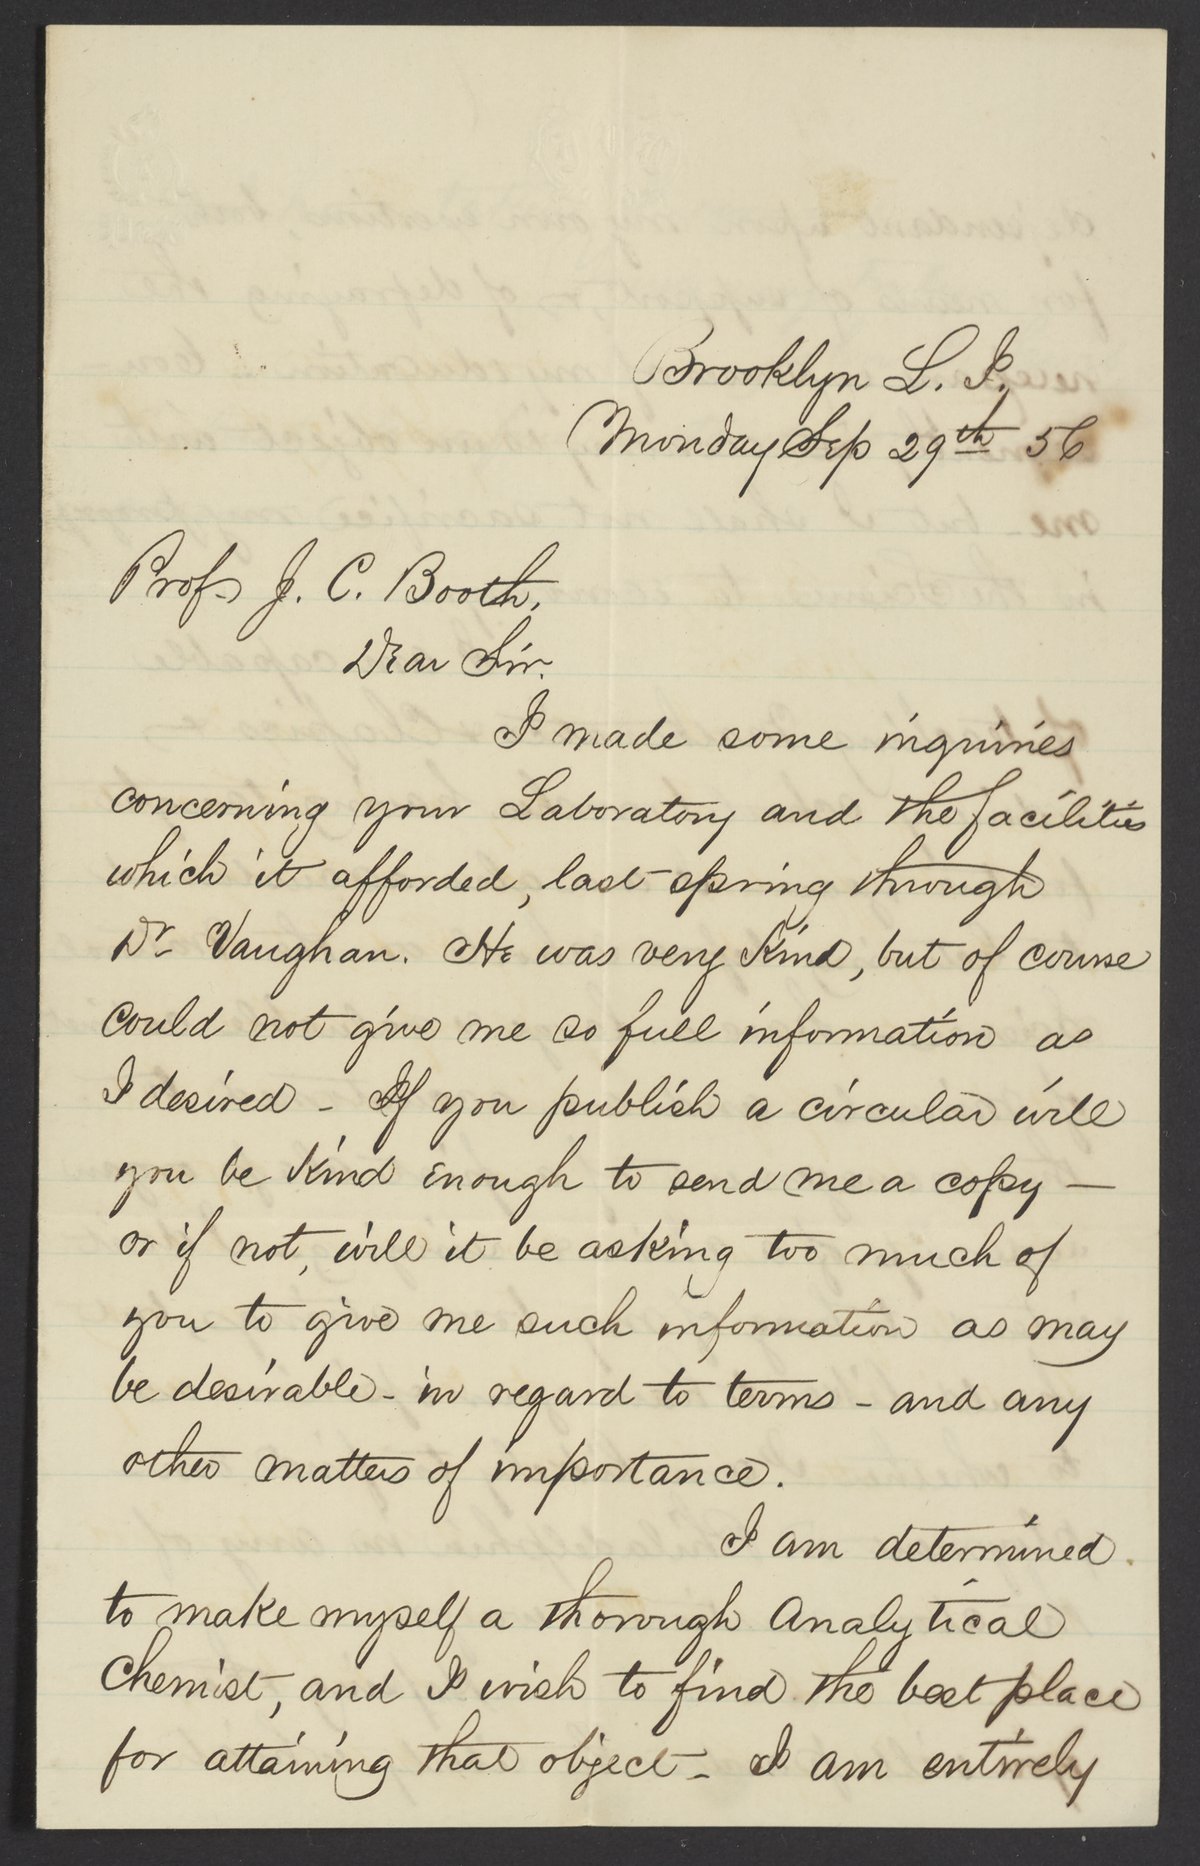 Brooklyn L. I.
Monday Sep 29th 56
Prof. J. C. Booth.
Dear Sir.
I made some inquiries
concerning your Laboratory and the facilities
which it afforded, last spring through
Dr Vaughan. He was very kind, but of course
could not give me so full information as
I desired - If you publish a circular will
you be kind enough to send me a copy —
or if not, will it be asking too much of
you to give me such information as may
be desirable - in regard to terms - and any
other matters of importance.
I am determined
to make myself a thorough Analytical
Chemist, and I wish to find the best place
for attaining that object - I am entirely